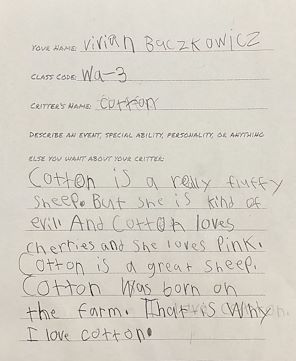 YOUR NAME: Vivian Baczkowicz
CLASS CODE: Wa-3
CRITTER'S NAME: cotton
DESCRIBE AN EVENT, SPECIAL ABILITY, PERSONALITY, OR ANYTHING
ELSE YOU WANT ABOUT YOUR CRITTER:
Cotton is a relly fluffy
sheep. But she is kind of
evil. And Cotton loves
cherries and she loves Pink.
Cotton is a great sheep.
Cotton Was born on
the farm. That is
I love cotton.